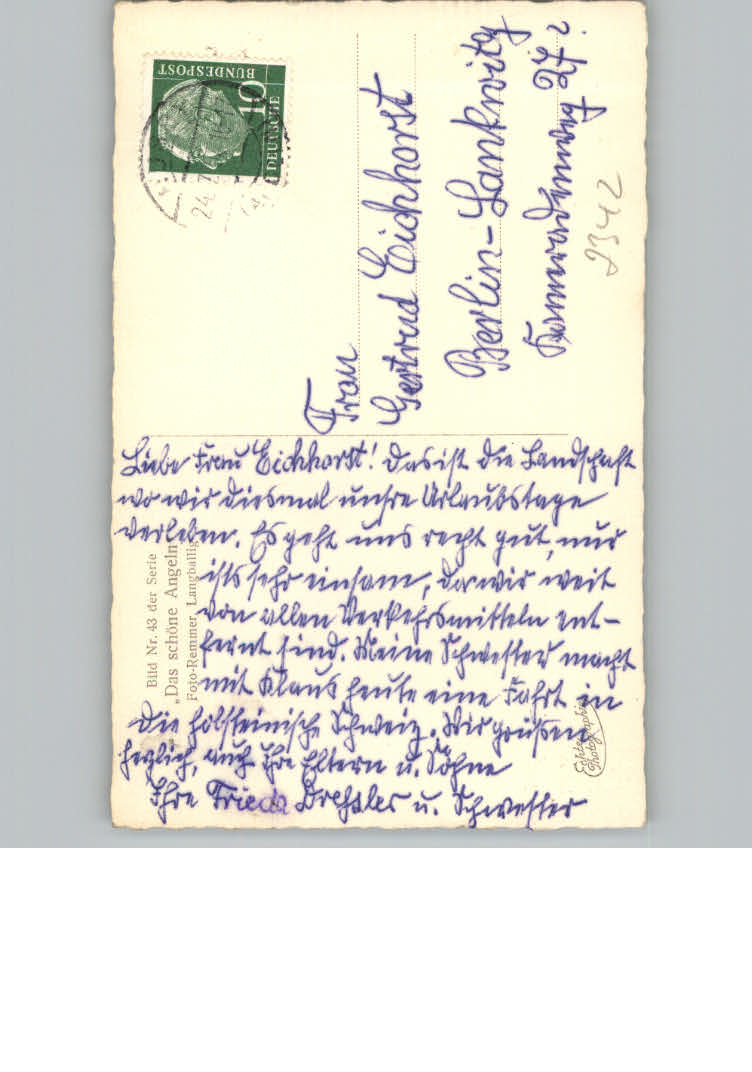 DEUTSCHE
BUNDESPOST
10
24.7
Frau
Gertrud Eichhorst
Berlin-Lankwitz
2342
Liebe Frau Eichhorst! Das ist die Landschaft
wo wir diesmal unsre Urlaubstage
verleben. Es geht uns recht gut, nur
ists sehr einsam, da wir weit
von allen Verkehrsmitteln ent-
fernt sind. Meine Schwester macht
mit Klaus heute eine Fahrt in
die holsteinische Schweiz. Wir grüßen
herzlich, auch Ihre Eltern u. Söhne
Ihre Frieda Drechsler u. Schwester
Bild Nr. 43 der Serie
„Das schöne Angeln"
Foto-Remmer, Langballig
Echte Photographie